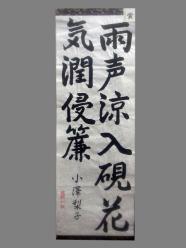 雨声涼入硯花
気潤侵簾
小澤梨子